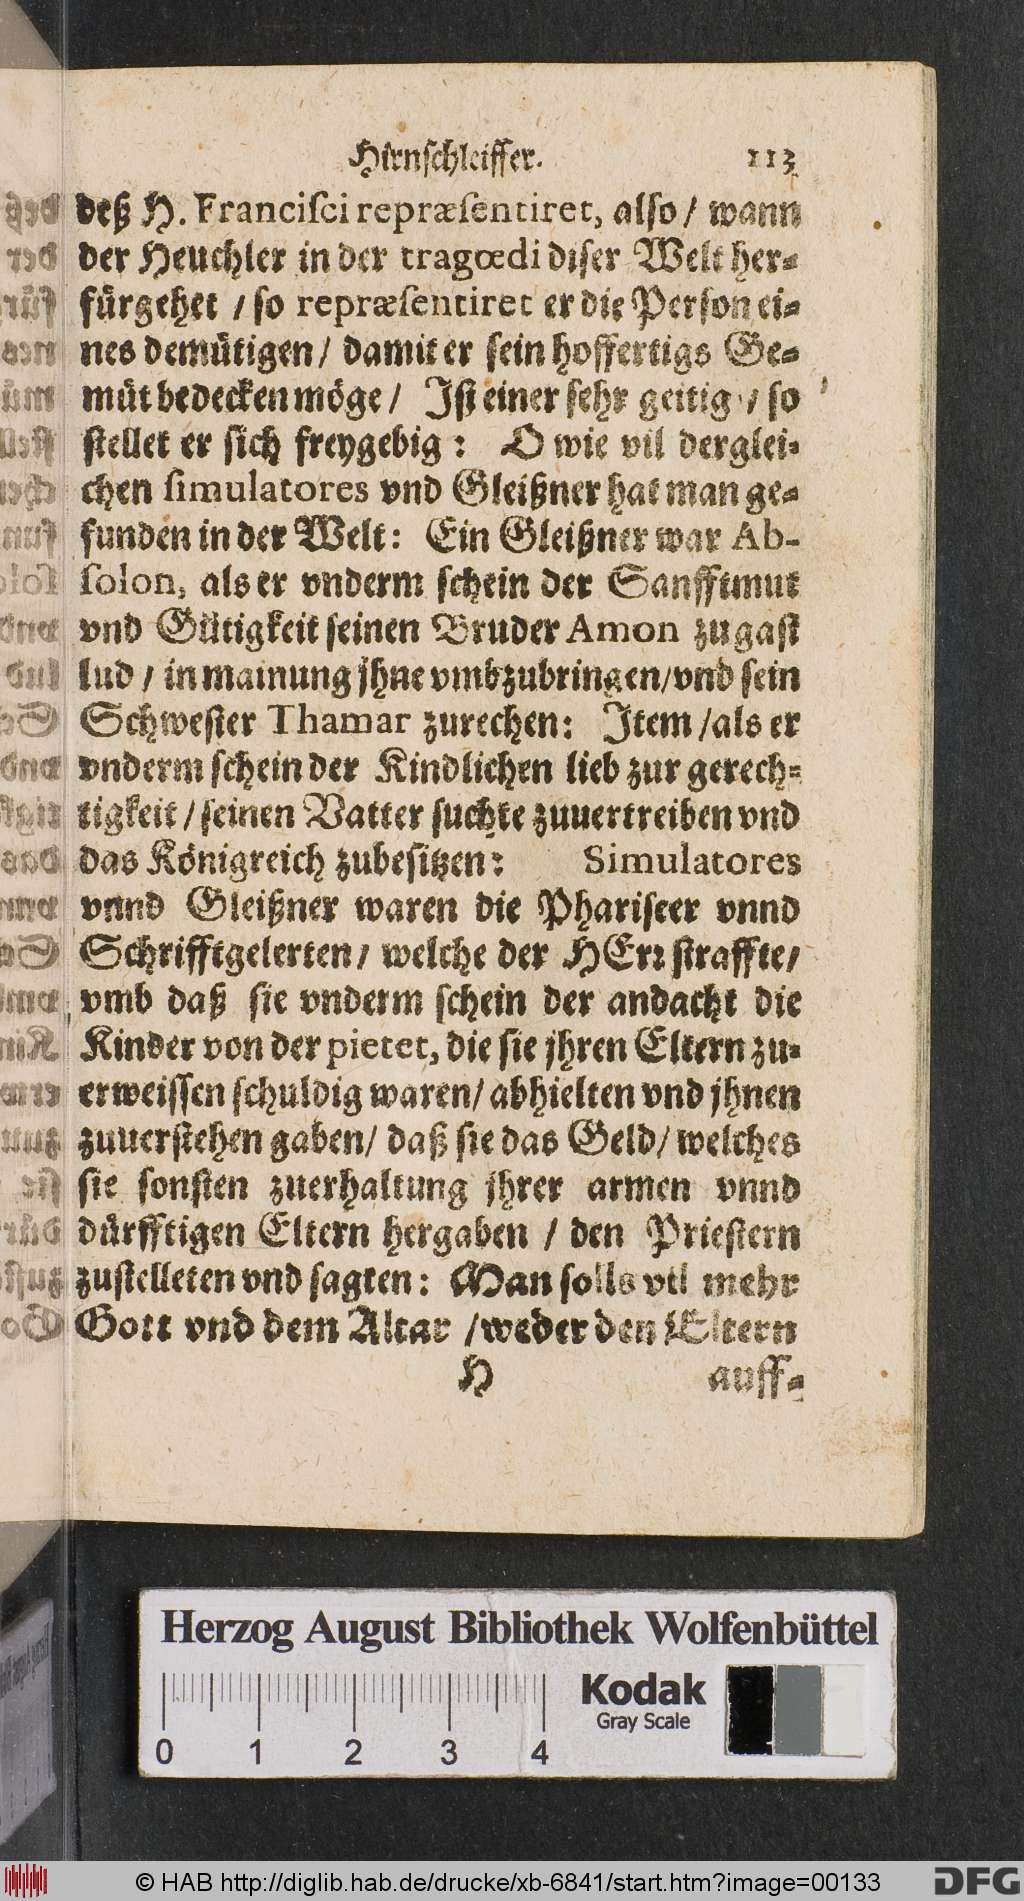 Hirnschleiffer. 113
deß H. Franciſci repræſentiret, alſo / wann
der Heuchler in der tragœdi diſer Welt her⸗
fürgehet / ſo repræſentiret er die Perſon ei⸗
nes demütigen / damit er ſein hoffertigs Ge⸗
müt bedecken möge / Iſt einer ſehr geitig / ſo
ſtellet er ſich freygebig : O wie vil derglei⸗
chen ſimulatores vnd Gleißner hat man ge⸗
funden in der Welt : Ein Gleißner war Ab-
ſolon, als er vnderm ſchein der Sanfftmut
vnd Gütigkeit ſeinen Bruder Amon zu gaſt
lud / in mainung jhne vmbzubringen / vnd ſein
Schweſter Thamar zurechen : Item / als er
vnderm ſchein der Kindlichen lieb zur gerech⸗
tigkeit / ſeinen Vatter ſuchte zuuertreiben vnd
das Königreich zubeſitzen : Simulatores
vnnd Gleißner waren die Phariſeer vnnd
Schrifftgelerten / welche der HErꝛ ſtraffte /
vmb daß ſie vnderm ſchein der andacht die
Kinder von der pietet, die ſie jhren Eltern zu⸗
erweiſſen ſchuldig waren / abhielten vnd jhnen
zuuerſtehen gaben / daß ſie das Geld / welches
ſie ſonſten zuerhaltung jhrer armen vnnd
dürfftigen Eltern hergaben / den Prieſtern
zuſtelleten vnd ſagten : Man ſolls vil mehr
Gott vnd dem Altar / weder den Eltern
H auff⸗
Herzog August Bibliothek Wolfenbüttel
Kodak
Gray Scale
0 1 2 3 4
© HAB http://diglib.hab.de/drucke/xb-6841/start.htm?image=00133
DFG